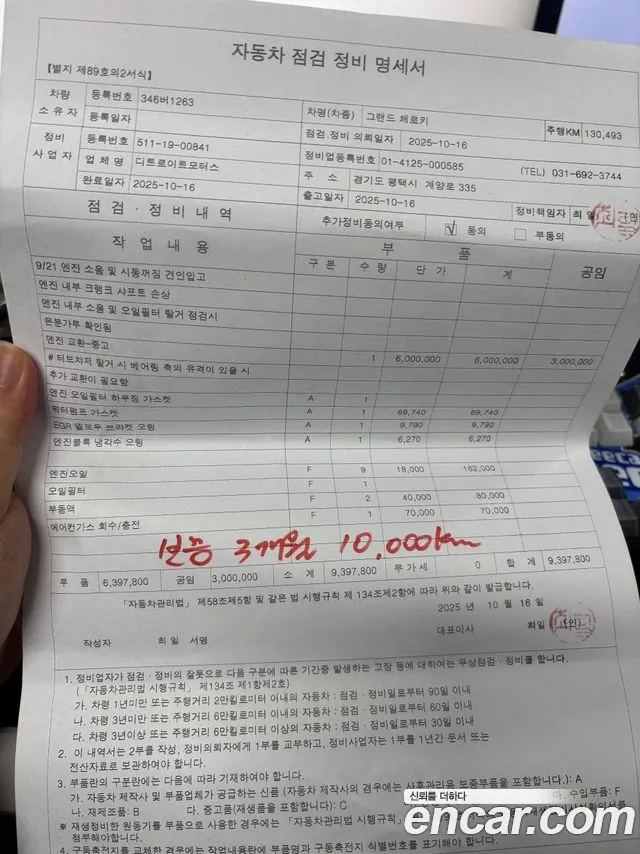 자동차 점검 정비 명세서
[별지 제89호의2서식]
차량 소유자 등록번호 346버1263 차명(차종) 그랜드 체로키 주행KM 130,493
등록일자 점검.정비 의뢰일자 2025-10-16
정비 사업자 등록번호 511-19-00841 정비업등록번호 01-4125-000585 (TEL) 031-692-3744
업 체 명 디트로이트모터스 주 소 경기도 평택시 계양로 335
완료일자 2025-10-16 출고일자 2025-10-16 정비책임자 최 일 (인)
점검 · 정비내역 추가정비동의여부 √ 동의 부동의
작 업 내 용 부 품 공임
구 분 수 량 단 가 계
9/21 엔진 소음 및 시동꺼짐 견인입고
엔진 내부 크랭크 샤프트 손상
엔진 내부 소음 및 오일필터 탈거 점검시
은분가루 확인됨
엔진 교환-중고 1 6,000,000 6,000,000 3,000,000
# 터보차저 탈거 시 베어링 축의 유격이 있을 시
추가 교환이 필요함
엔진 오일필터 하우징 가스켓 A 1
워터펌프 가스켓 A 1 69,740 69,740
EGR 엘보우 브라켓 오링 A 1 9,790 9,790
엔진블록 냉각수 오링 A 1 6,270 6,270
엔진오일 F 9 18,000 162,000
오일필터 F 1
부동액 F 2 40,000 80,000
에어컨가스 회수/충전 F 1 70,000 70,000
보증 3개월 10,000km
부 품 6,397,800 공임 3,000,000 소 계 9,397,800 부가세 0 합 계 9,397,800
「자동차관리법」 제58조제5항 및 같은 법 시행규칙 제 134조제2항에 따라 위와 같이 발급합니다.
2025 년 10 월 16 일
작성자 최 일 서명 대표이사 최일 (인)
1. 정비업자가 점검 · 정비의 잘못으로 다음 구분에 따른 기간중 발생하는 고장 등에 대하여는 무상점검 · 정비를 합니다.
(「자동차관리법 시행규칙」 제134조 제1항제2호)
가. 차령 1년미만 또는 주행거리 2만킬로미터 이내의 자동차 : 점검 · 정비일로부터 90일 이내
나. 차령 3년미만 또는 주행거리 6만킬로미터 이내의 자동차 : 점검 · 정비일로부터 60일 이내
다. 차령 3년이상 또는 주행거리 6만킬로미터 이상의 자동차 : 점검 · 정비일로부터 30일 이내
2. 이 내역서는 2부를 작성, 정비의뢰자에게 1부를 교부하고, 정비사업자는 1부를 1년간 문서 또는
전산자료로 보관하여야 합니다.
3. 부품란의 구분란에는 다음에 따라 기재하여야 합니다.
가. 자동차 제작사 및 부품업체가 공급하는 신품 (자동차 제작사의 경우에는 사후관리용 보증부품을 포함합니다.): A
나, 재제조품: B 다. 중고품(재생품을 포함합니다): C 마. 수입부품: F
※ 재생정비한 원동기를 부품으로 사용한 경우에는 「자동차관리법 시행규칙」
첨부해야합니다.
4. 구동축전지를 교체한 경우에는 작업내용란에 부품명과 구동축전지 식별번호를 표기해야 합니다.
신뢰를 더하다
encar.com